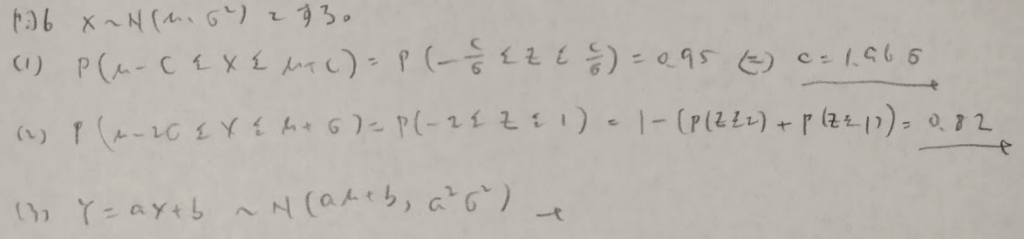 P.36 X ~ N(μ, σ²) とする。
(1) P(μ-c ≤ X ≤ μ+c) = P(-c/σ ≤ Z ≤ c/σ) = 0.95 ⇔ c = 1.96σ
(2) P(μ-2σ ≤ X ≤ μ+σ) = P(-2 ≤ Z ≤ 1) = 1-(P(Z≥2) + P(Z≥1)) = 0.82
(3) Y = aX+b ~ N(aμ+b, a²σ²)